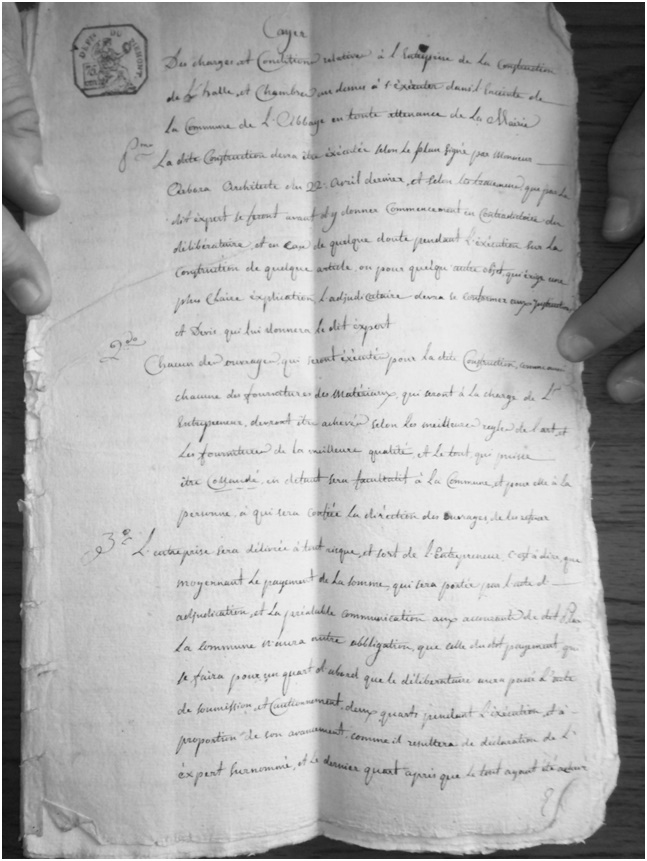 Cayer
DEPT. DU PIEMONT
Des charges et Conditions relative à l'Entreprise de la Construction
de L'halle, et Chambre au dessus à s'éxécuter dans l'enceinte de
La Commune de L'Abbaye en toute attenance de La Mairie
P.mo La dite Construction devra être éxécutée selon le plan signé par Monsieur
Architecte du 22. Avril dernier, et selon les que par le
dit expert se feront avant d'y donner Commencement en Contradictoire du
délibérataire, et en cas de quelque doute pendant L'éxécution sur La
Construction de quelque article, ou pour quelqu'autre objet, qui éxige une
plus Claire explication L'adjudicataire devra se Conformer aux Instructions
et Devis qui lui donnera le dit expert
2.do Chacun des ouvrages qui seront éxécutés pour la dite Construction, comme aussi
chacune des fournitures des Matériaux, qui seront à La charge de L'
Entrepreneur, devront être achevés selon Les meilleures regles de l'art, et
Les fournitures de la meilleure qualité, et le tout, qui puisse
être Collaudé, en défaut sera facultatif à la Commune, et pour elle à la
personne, à qui sera confiée La diréction des ouvrages, de les refuser
3.o L'entreprise sera délivrée à tout risque, et sort de l'Entrepreneur, c'est à dire, que
moyennant Le payement de La somme, qui sera portée par l'acte d'
adjudication, et La préalable communication aux accourants du dit Plan
La commune n'aura autre obbligation, que celle du dit payement qui
se faira pour un quart d'abord que le délibérataire aura passé L'acte
de soumission, et Cautionnement, deux quarts pendant L'éxécution, et à
proportion de son avancement, comme il resultera de déclaration de L'
éxpert surnommé, et Le dernier quart après que le tout ayant été